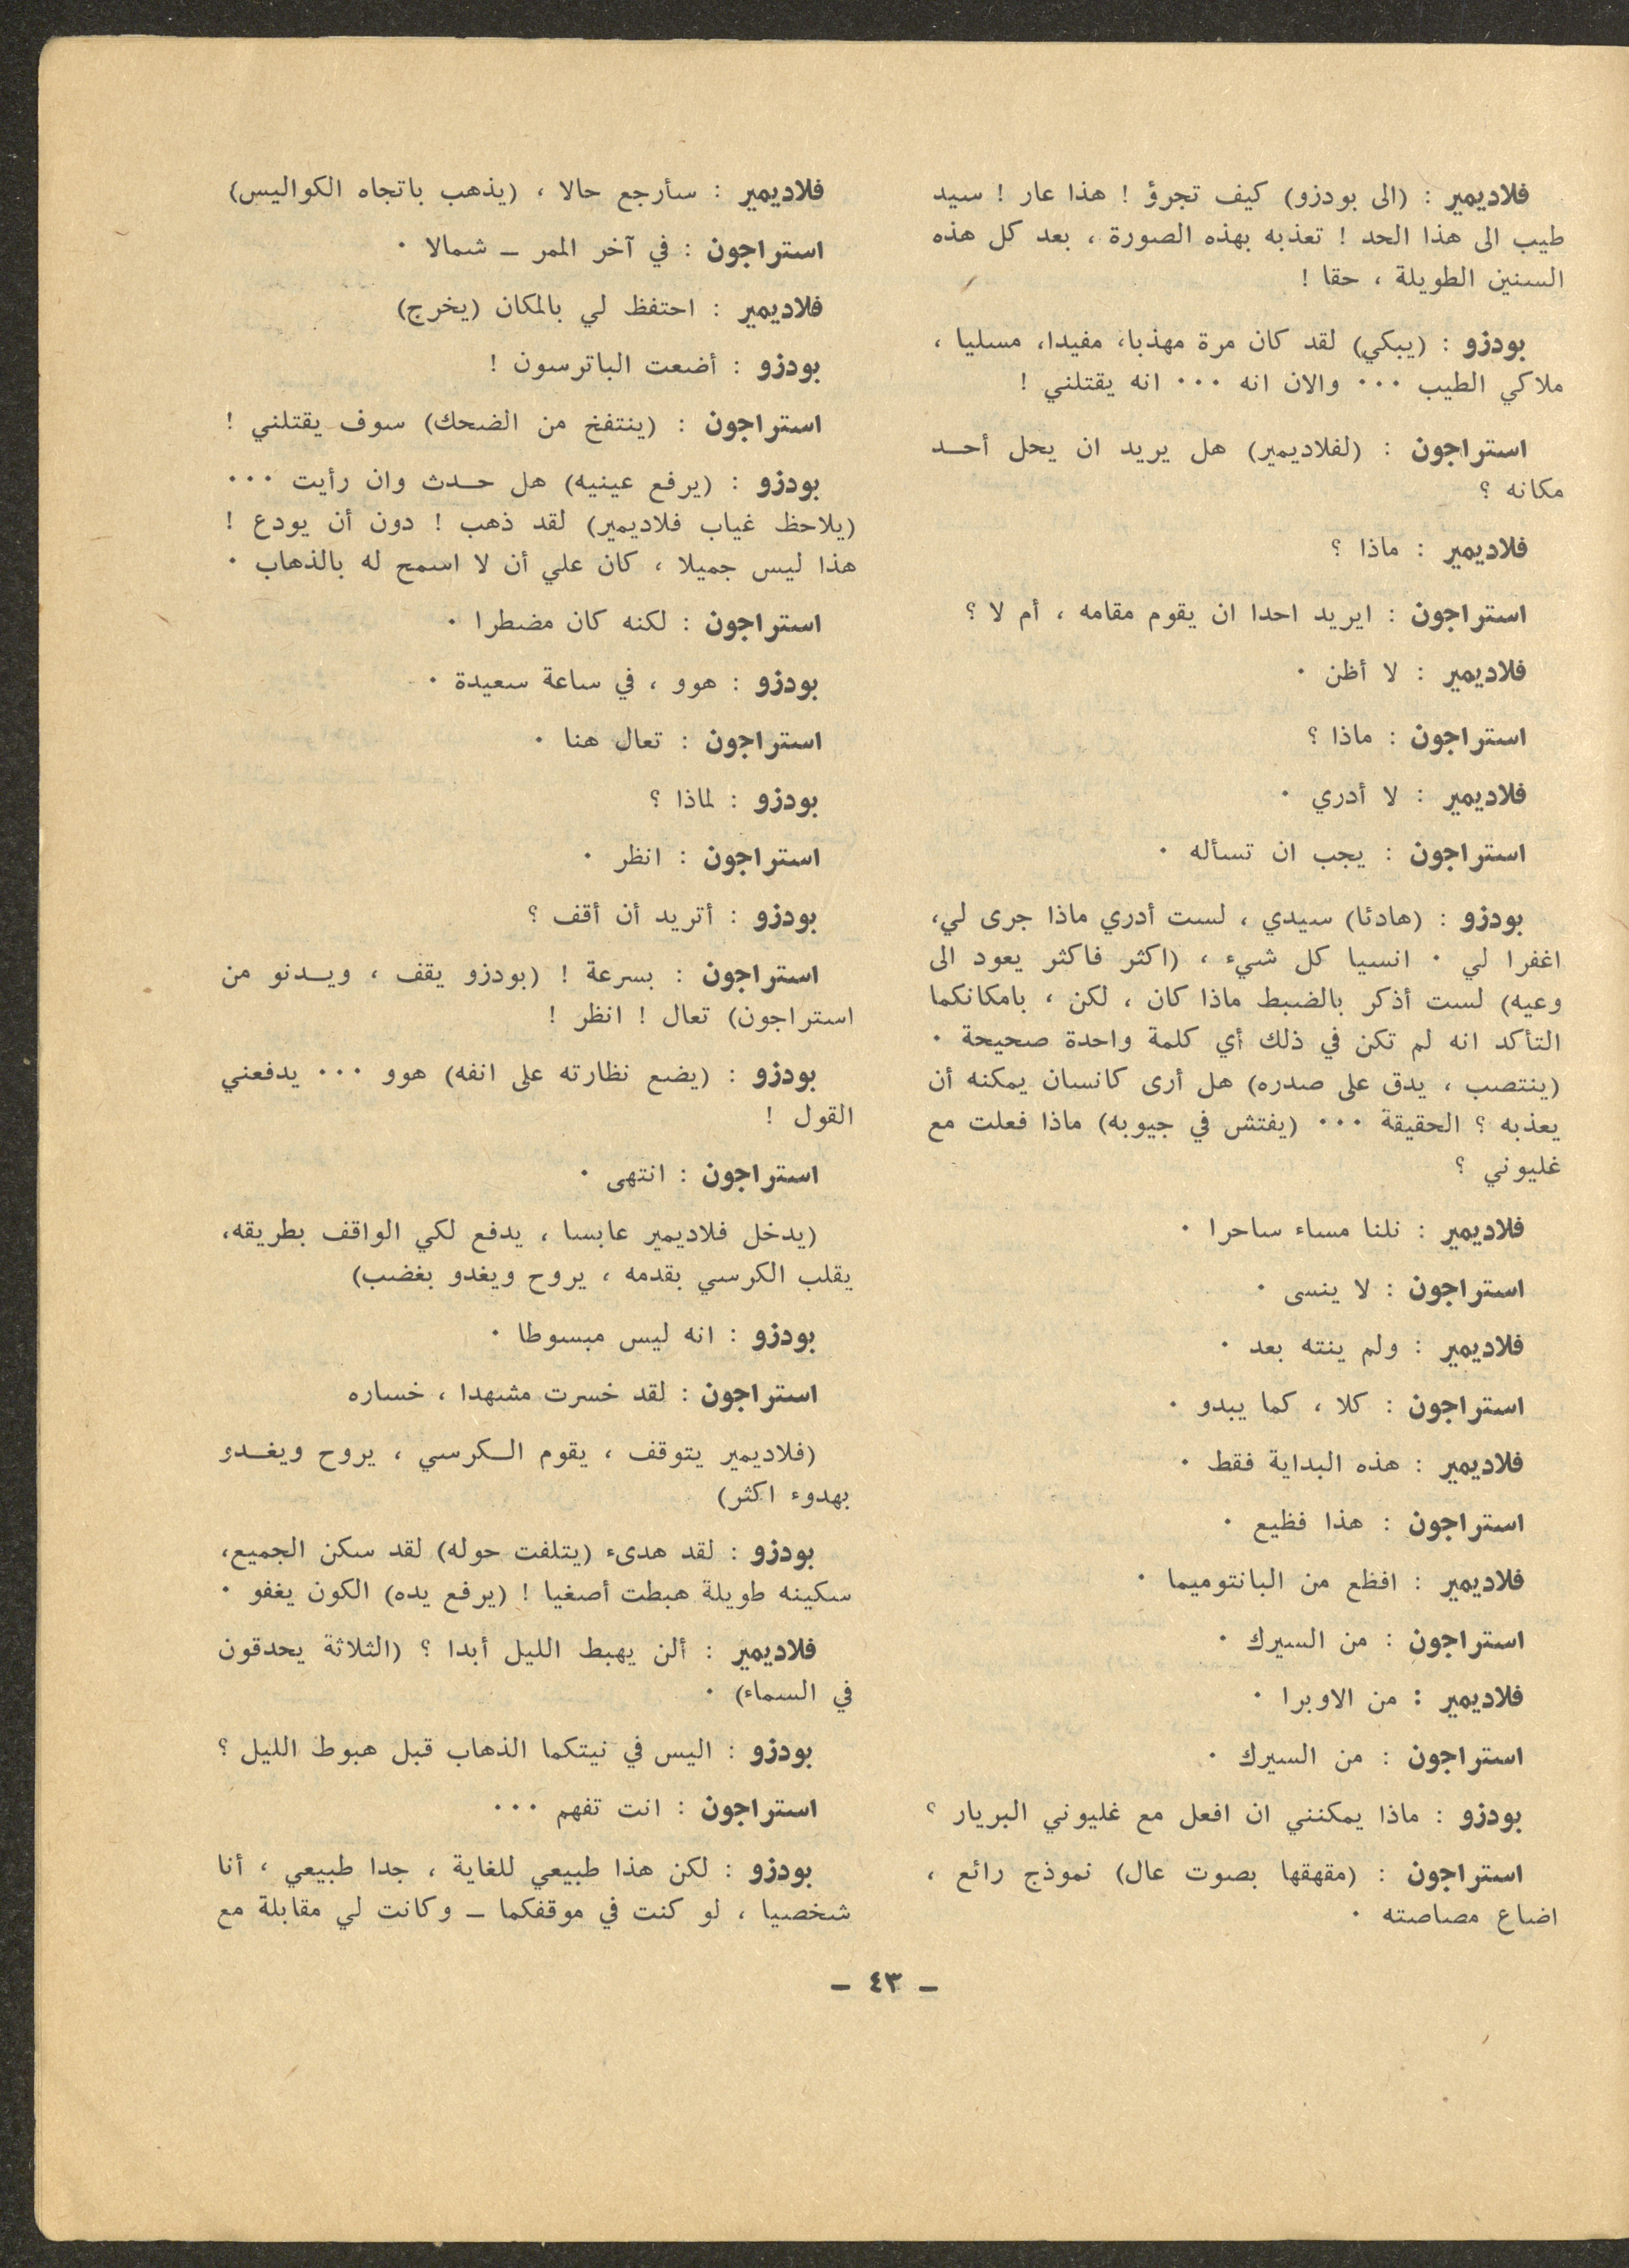 فلاديمير : (الى بودزو) كيف تجرؤ ! هذا عار ! سيد
طيب الى هذا الحد ! تعذبه بهذه الصورة ، بعد كل هذه
السنين الطويلة ، حقا !
بودزو : (يبكي) لقد كان مرة مهذبا، مفيدا، مسليا ،
ملاكي الطيب ٠٠٠ والان انه ٠٠٠ انه يقتلني !
استراجون : (لفلاديمير) هل يريد ان يحل أحـد
مكانه ؟
فلاديمير : ماذا ؟
استراجون : ايريد احدا ان يقوم مقامه ، أم لا ؟
فلاديمير : لا أظن ٠
استراجون : ماذا ؟
فلاديمير : لا أدري ٠
استراجون : يجب ان تسأله ٠
بودزو : (هادئا) سيدي ، لست أدري ماذا جرى لي،
اغفرا لي ٠ انسيا كل شيء ، (اكثر فاكثر يعود الى
وعيه) لست أذكر بالضبط ماذا كان ، لكن ، بامكانكما
التأكد انه لم تكن في ذلك أي كلمة واحدة صحيحة ٠
(ينتصب ، يدق على صدره) هل أرى كانسان يمكنه أن
يعذبه ؟ الحقيقة ٠٠٠ (يفتش في جيوبه) ماذا فعلت مع
غليوني ؟
فلاديمير : نلنا مساء ساحرا ٠
استراجون : لا ينسى ٠
فلاديمير : ولم ينته بعد ٠
استراجون : كلا ، كما يبدو ٠
فلاديمير : هذه البداية فقط ٠
استراجون : هذا فظيع ٠
فلاديمير : افظع من البانتوميما ٠
استراجون : من السيرك ٠
فلاديمير : من الاوبرا ٠
استراجون : من السيرك ٠
بودزو : ماذا يمكنني ان افعل مع غليوني البريار ؟
استراجون : (مقهقها بصوت عال) نموذج رائع ،
اضاع مصاصته ٠
فلاديمير : سأرجع حالا ، (يذهب باتجاه الكواليس)
استراجون : في آخر الممر ــ شمالا ٠
فلاديمير : احتفظ لي بالمكان (يخرج)
بودزو : أضعت الباترسون !
استراجون : (ينتفخ من الضحك) سوف يقتلني !
بودزو : (يرفع عينيه) هل حـدث وان رأيت ٠٠٠
(يلاحظ غياب فلاديمير) لقد ذهب ! دون أن يودع !
هذا ليس جميلا ، كان علي أن لا اسمح له بالذهاب ٠
استراجون : لكنه كان مضطرا ٠
بودزو : هوو ، في ساعة سعيدة ٠
استراجون : تعال هنا ٠
بودزو : لماذا ؟
استراجون : انظر ٠
بودزو : أتريد أن أقف ؟
استراجون : بسرعة ! (بودزو يقف ، ويـدنو من
استراجون) تعال ! انظر !
بودزو : (يضع نظارته على انفه) هوو ٠٠٠ يدفعني
القول !
استراجون : انتهى ٠
(يدخل فلاديمير عابسا ، يدفع لكي الواقف بطريقه،
يقلب الكرسي بقدمه ، يروح ويغدو بغضب)
بودزو : انه ليس مبسوطا ٠
استراجون : لقد خسرت مشهدا ، خساره
(فلاديمير يتوقف ، يقوم الـكرسي ، يروح ويغـدو
بهدوء اكثر)
بودزو : لقد هدىء (يتلفت حوله) لقد سكن الجميع،
سكينه طويلة هبطت أصغيا ! (يرفع يده) الكون يغفو ٠
فلاديمير : ألن يهبط الليل أبدا ؟ (الثلاثة يحدقون
في السماء) ٠
بودزو : اليس في نيتكما الذهاب قبل هبوط الليل ؟
استراجون : انت تفهم ٠٠٠
بودزو : لكن هذا طبيعي للغاية ، جدا طبيعي ، أنا
شخصيا ، لو كنت في موقفكما ــ وكانت لي مقابلة مع
ــ ٤٣ ــ